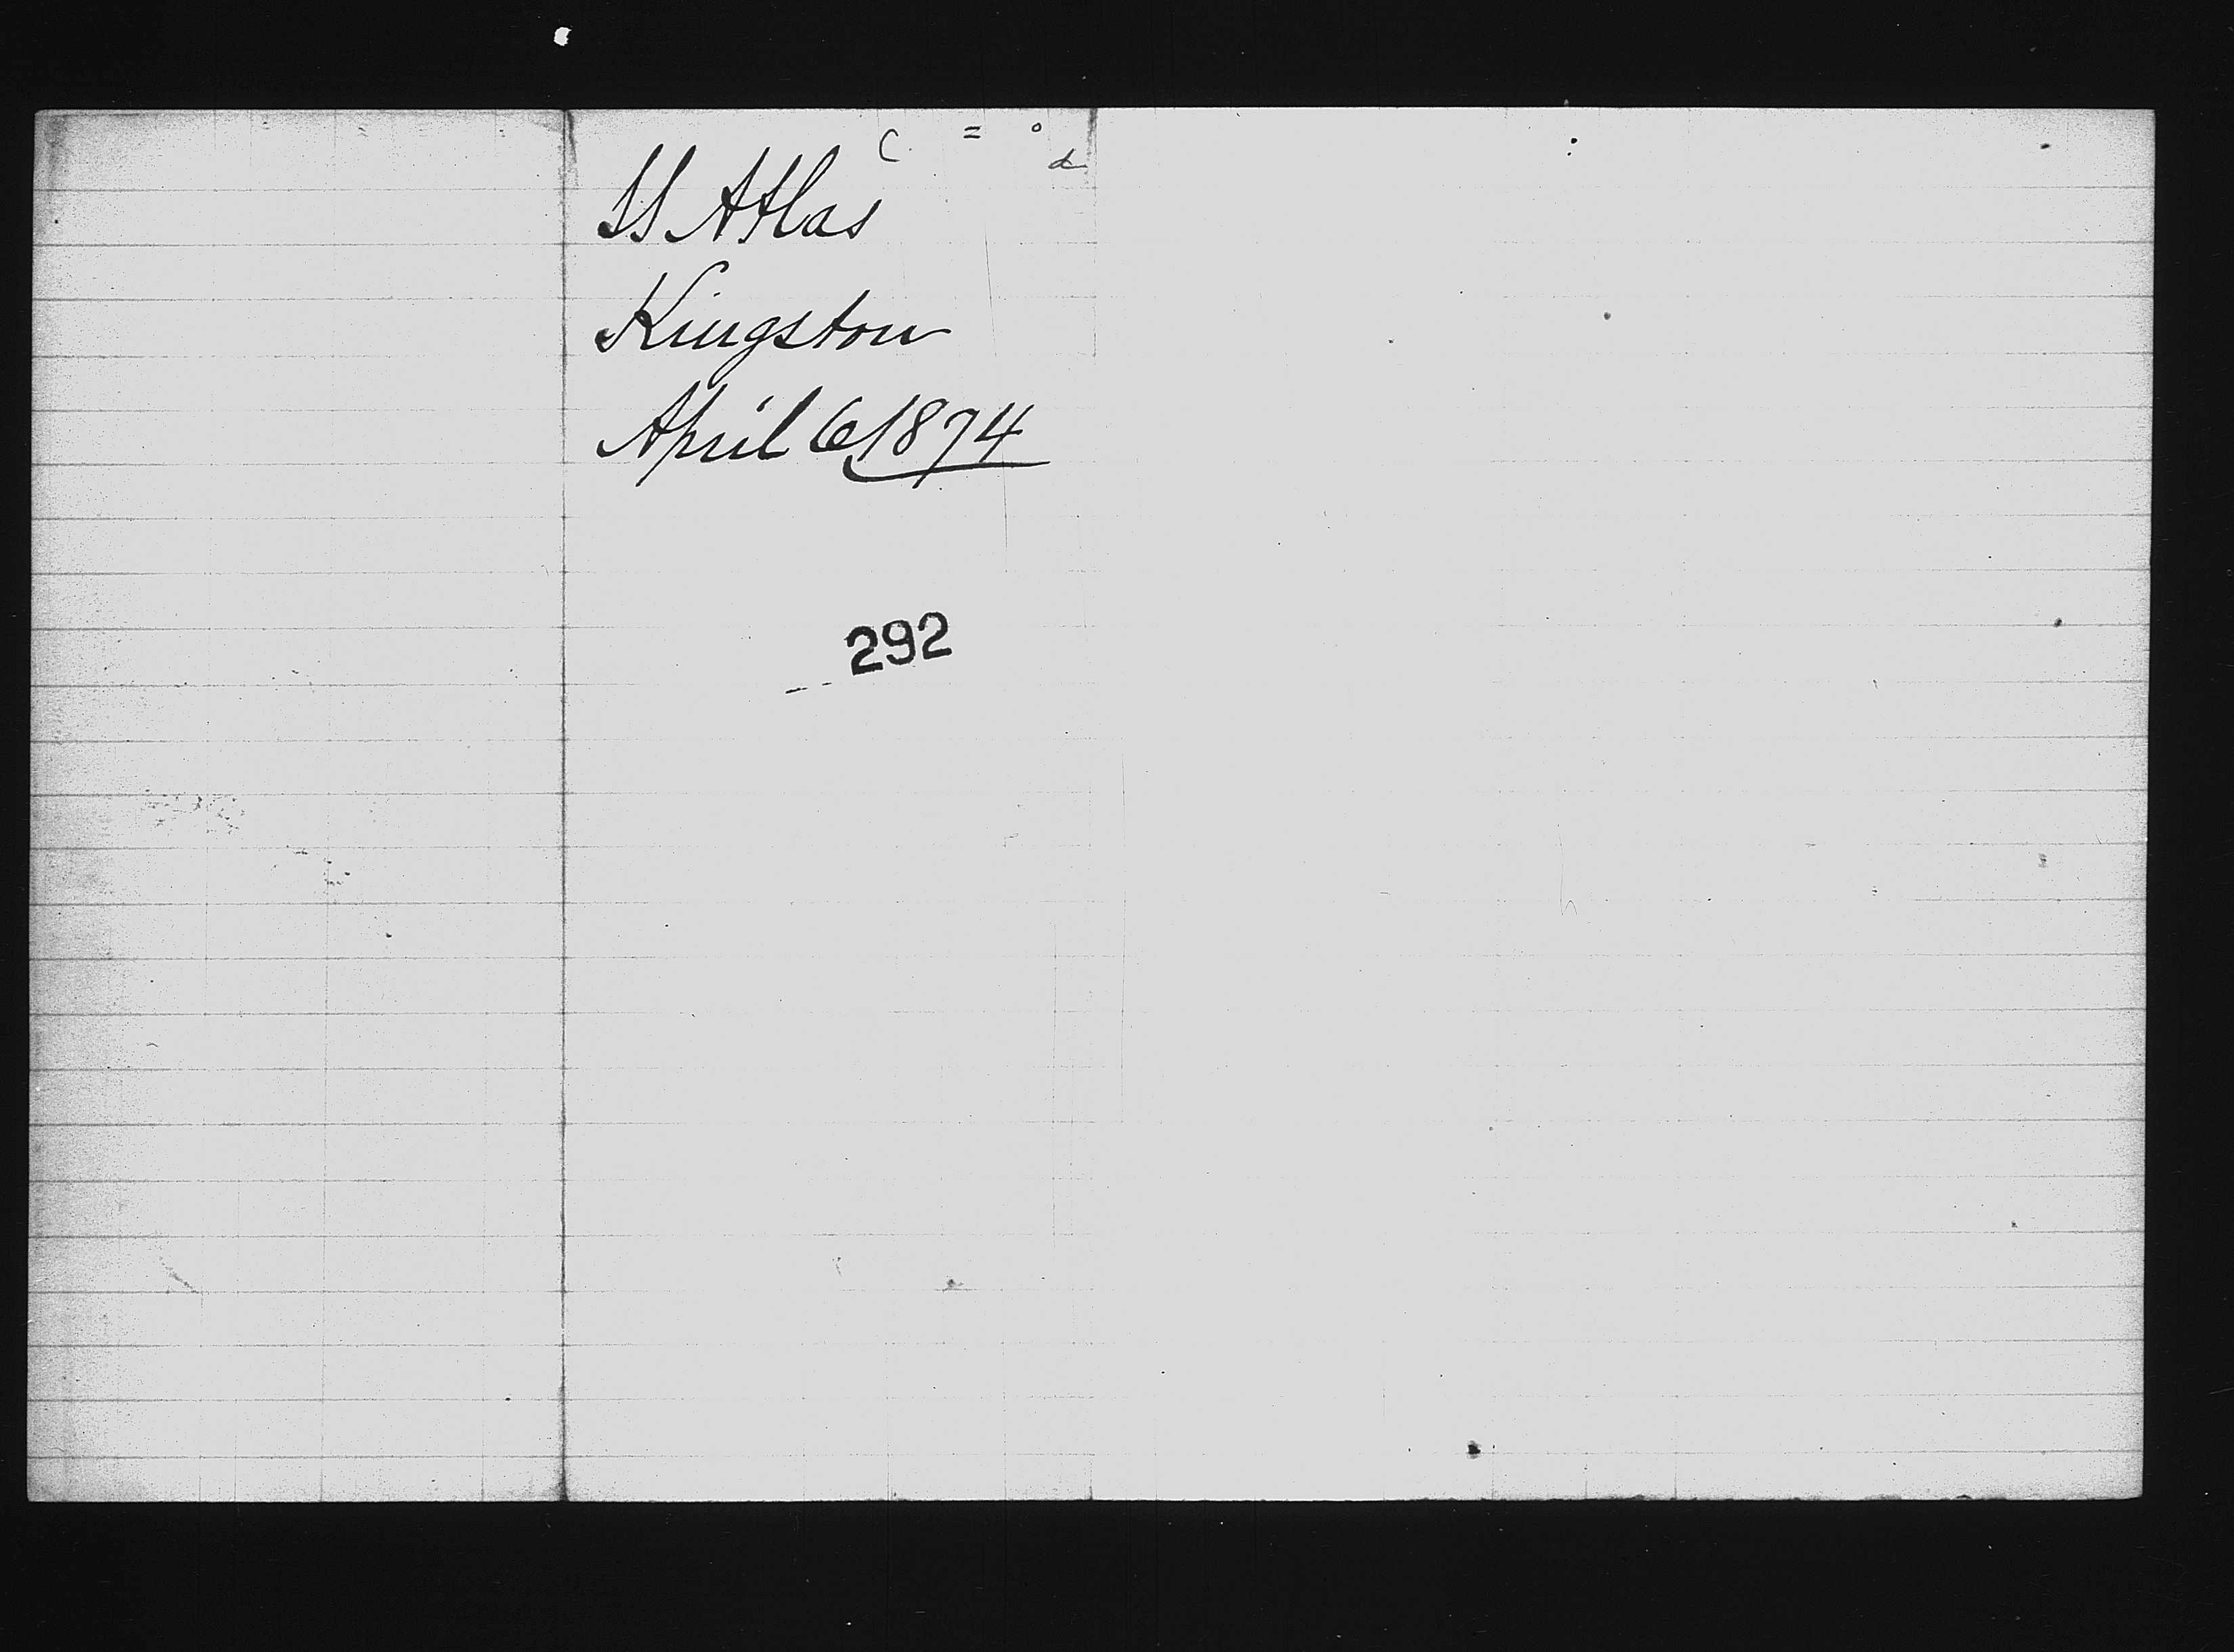 SS Atlas
Kingston
April 6, 1874
292